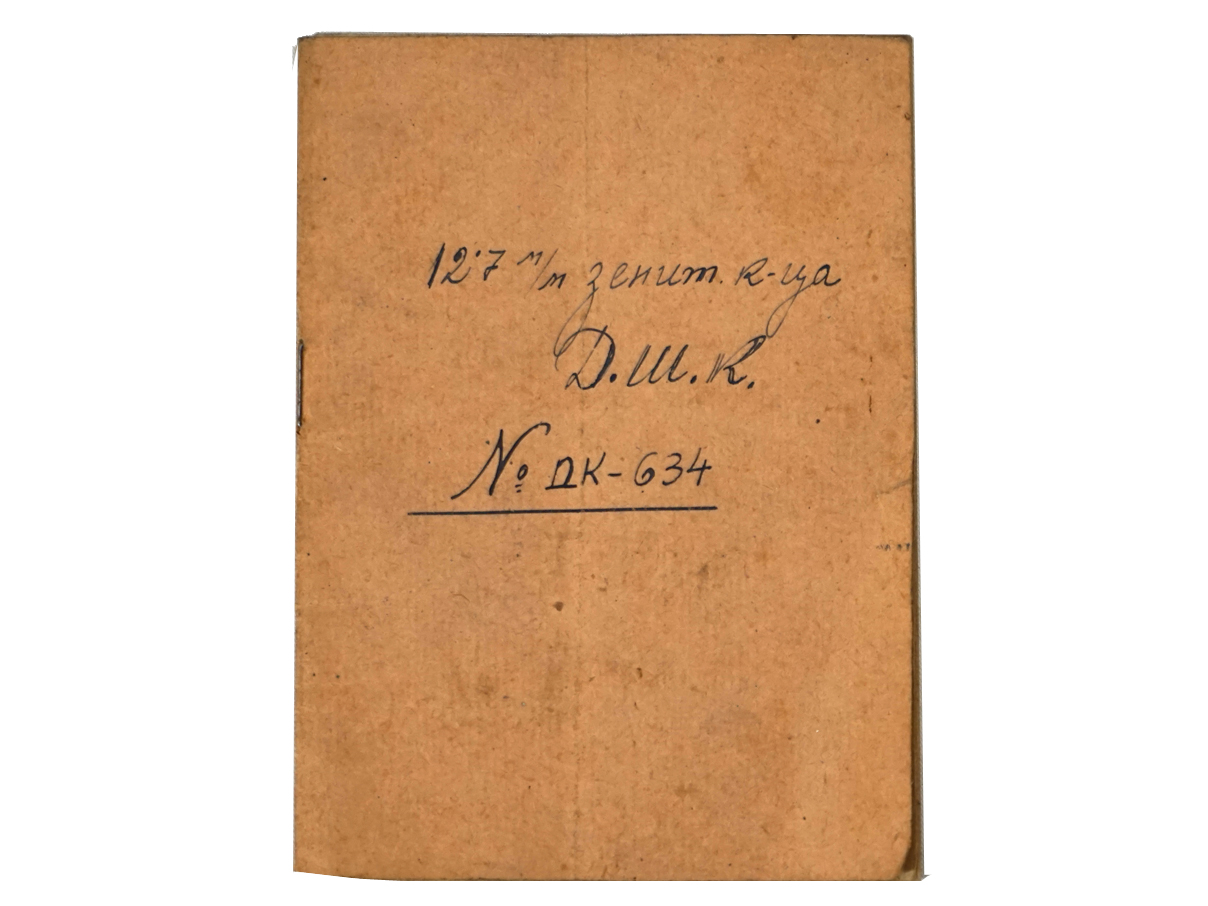 12·7 м/м зенит. к-ца
Д.Ш.К.
№ ДК-634